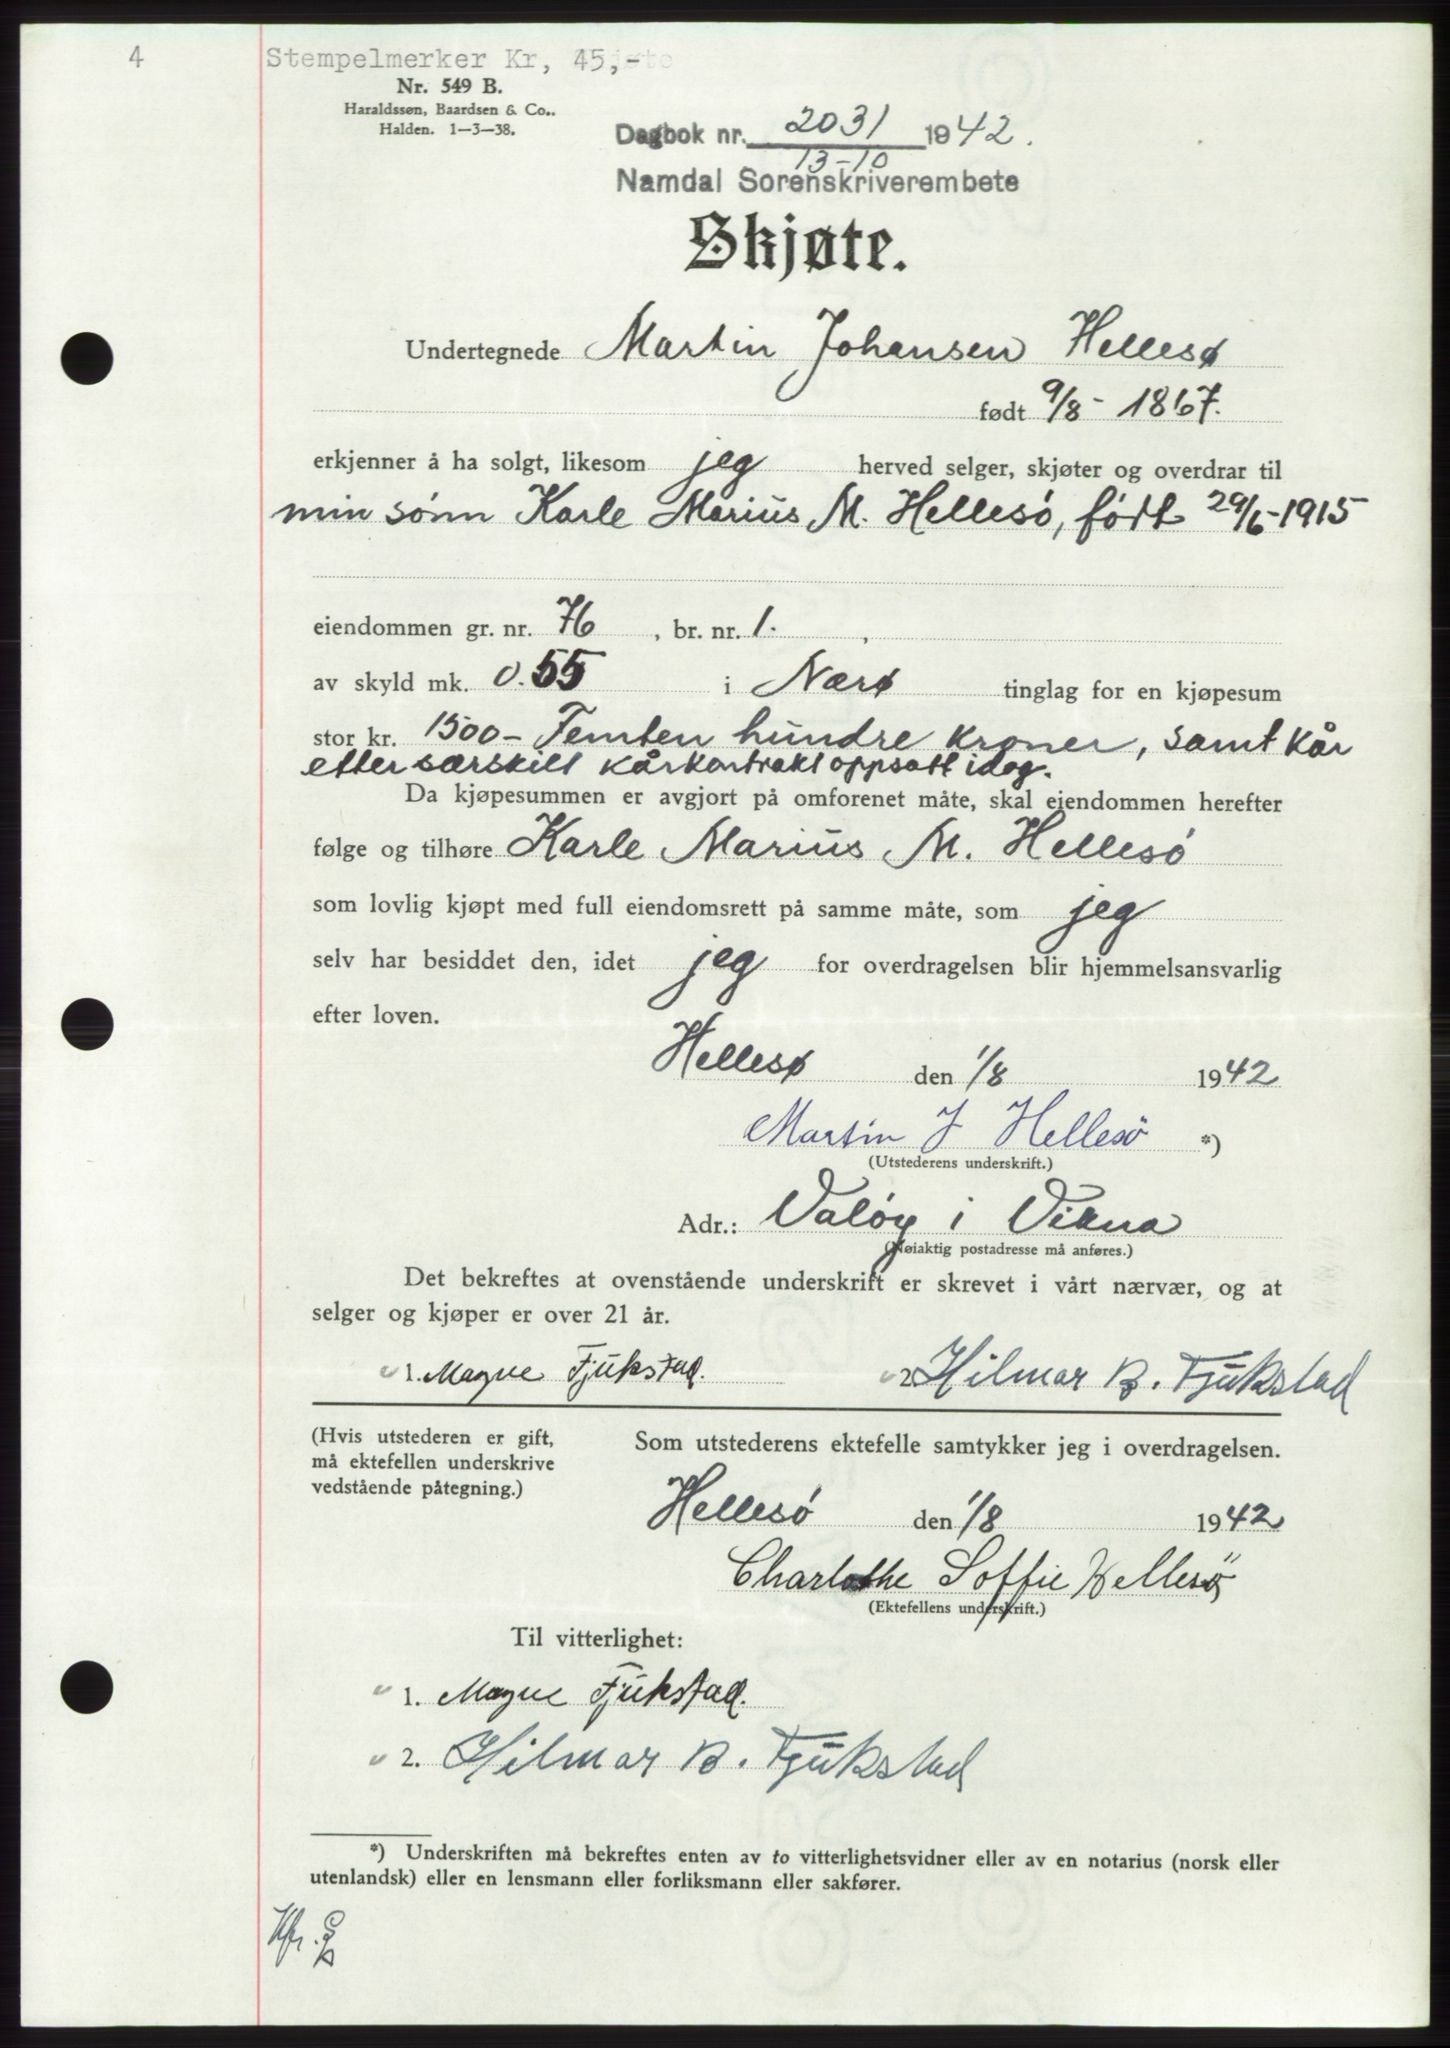 4
Stempelmerker Kr, 45,-
Nr. 549 B.
Haraldssøn, Baardsen & Co..
Halden. 1—3—38.
Dagbok nr. 2031 1942.
13-10
Namdal Sorenskriverembete
Skjøte.
Undertegnede Martin Johansen Hellesø
født 9/8 - 1867.
erkjenner å ha solgt, likesom jeg herved selger, skjøter og overdrar til
min sønn Karle Marius M. Hellesó, født 29/6-1915
eiendommen gr. nr. 76, br. nr. 1. ,
av skyld mk. 0.55 i Nærø tinglag for en kjøpesum
stor kr. 1500- Femten hundre kroner, samt kår
etter særskilt kårkontrakt oppsatt idag.
Da kjøpesummen er avgjort på omforenet måte, skal eiendommen herefter
følge og tilhøre Karle Marius M. Hellesó
som lovlig kjøpt med full eiendomsrett på samme måte, som jeg
selv har besiddet den, idet jeg for overdragelsen blir hjemmelsansvarlig
efter loven.
Hellesø den 1/8 1942
Martin J Hellesö *)
(Utstederens underskrift.)
Adr.: Valóy i Vikna
(Nøiaktig postadresse må anføres.)
Det bekreftes at ovenstående underskrift er skrevet i vårt nærvær, og at
selger og kjøper er over 21 år.
1. Magne Fjukstad. 2. Hilmar B. Fjukstad
(Hvis utstederen er gift,
må ektefellen underskrive
vedstående påtegning.)
Som utstederens ektefelle samtykker jeg i overdragelsen.
Hellesó den 1/8 1942
Charlothe Soffie Hellesö
(Ektefellens underskrift.)
Til vitterlighet:
1. Magne Fjukstad.
2. Hilmar B. Fjukstad
*) Underskriften må bekreftes enten av to vitterlighetsvidner eller av en notarius (norsk eller
utenlandsk) eller en lensmann eller forliksmann eller sakfører.